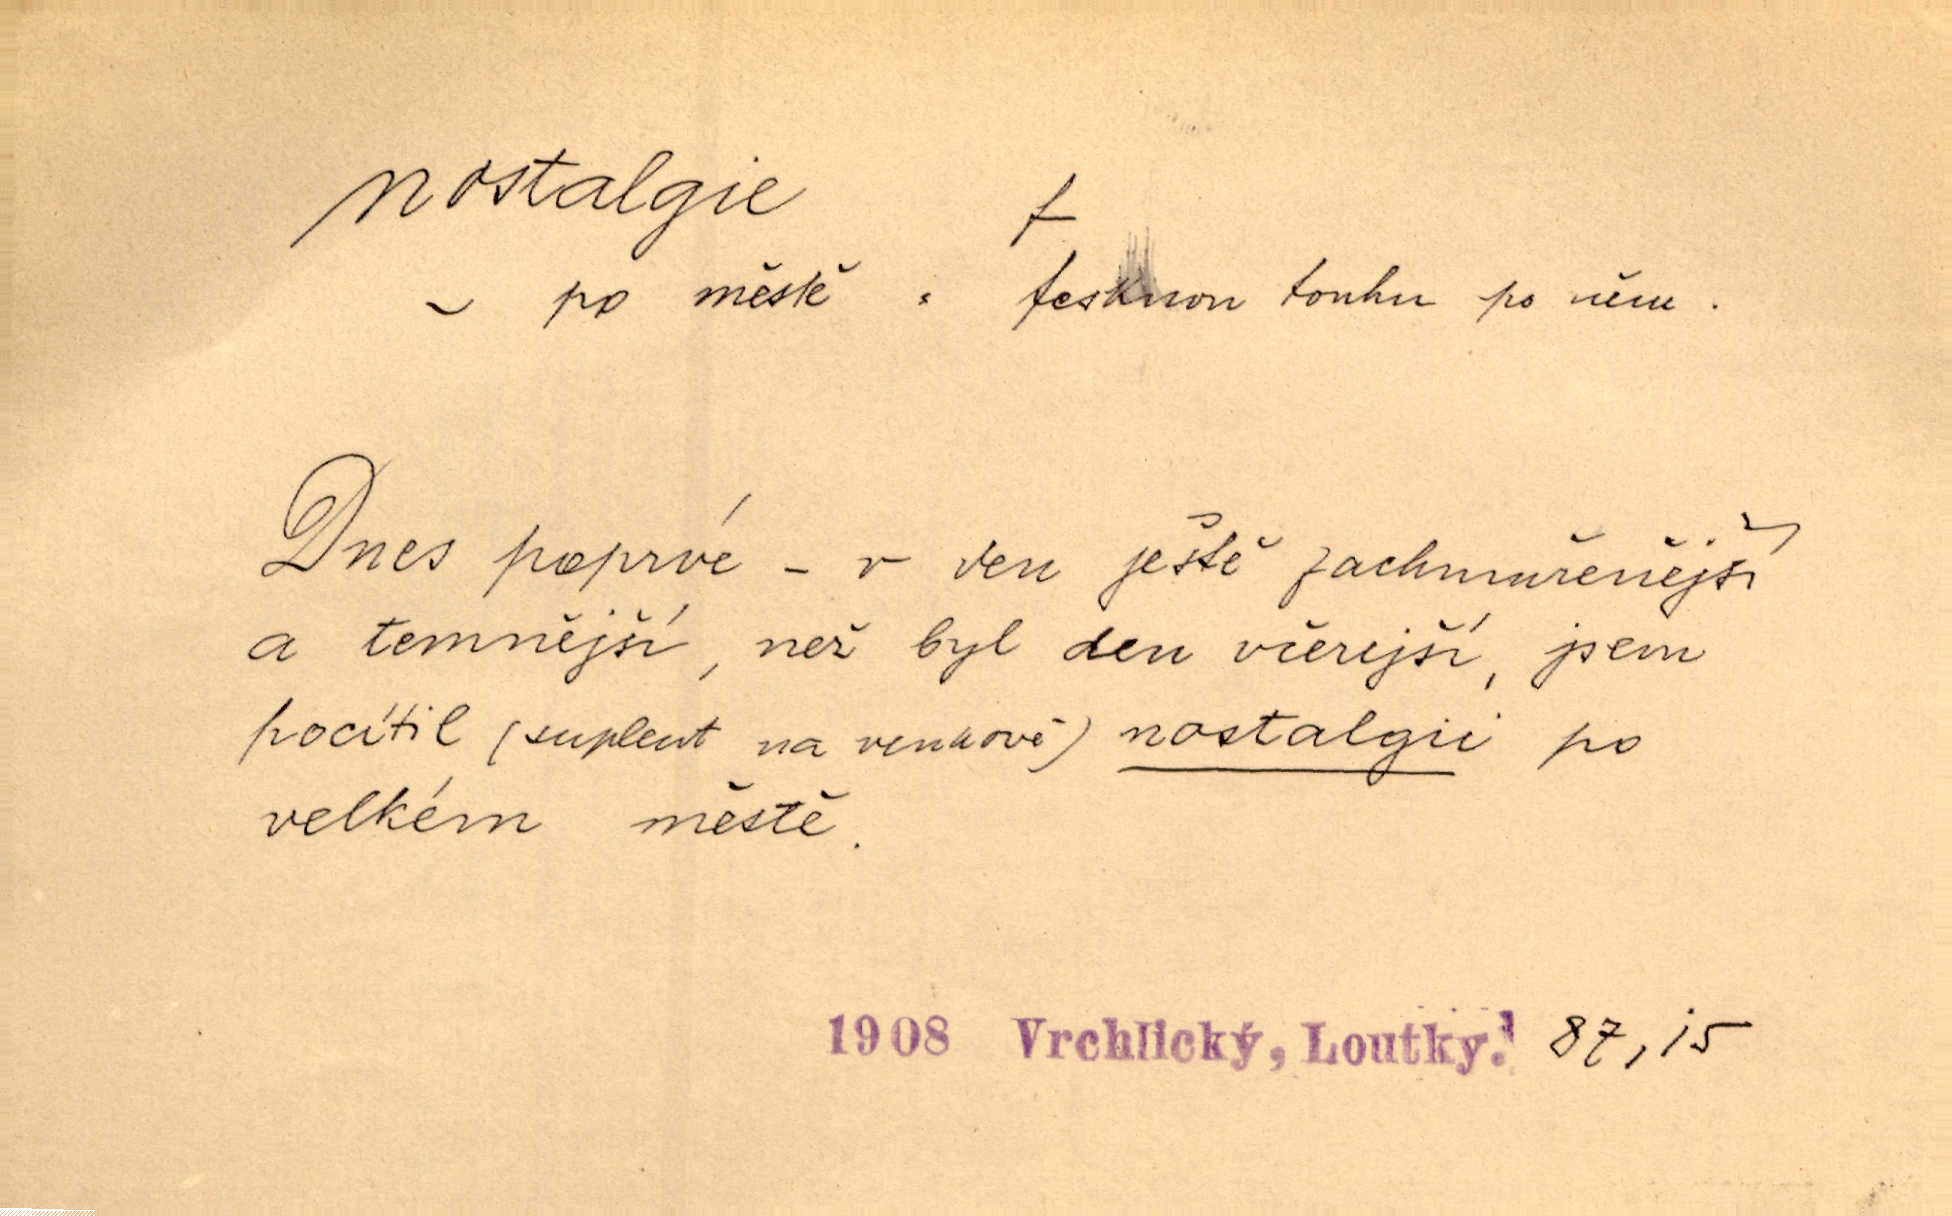 nostalgie f
~ po městě : tesknou touhu po něm.
Dnes poprvé – v den ještě zachmuřenější
a temnější, než byl den včerejší, jsem
pocítil (suplent na venkově) nostalgii po
velkém městě.
1908 Vrchlický, Loutky. 87, 15